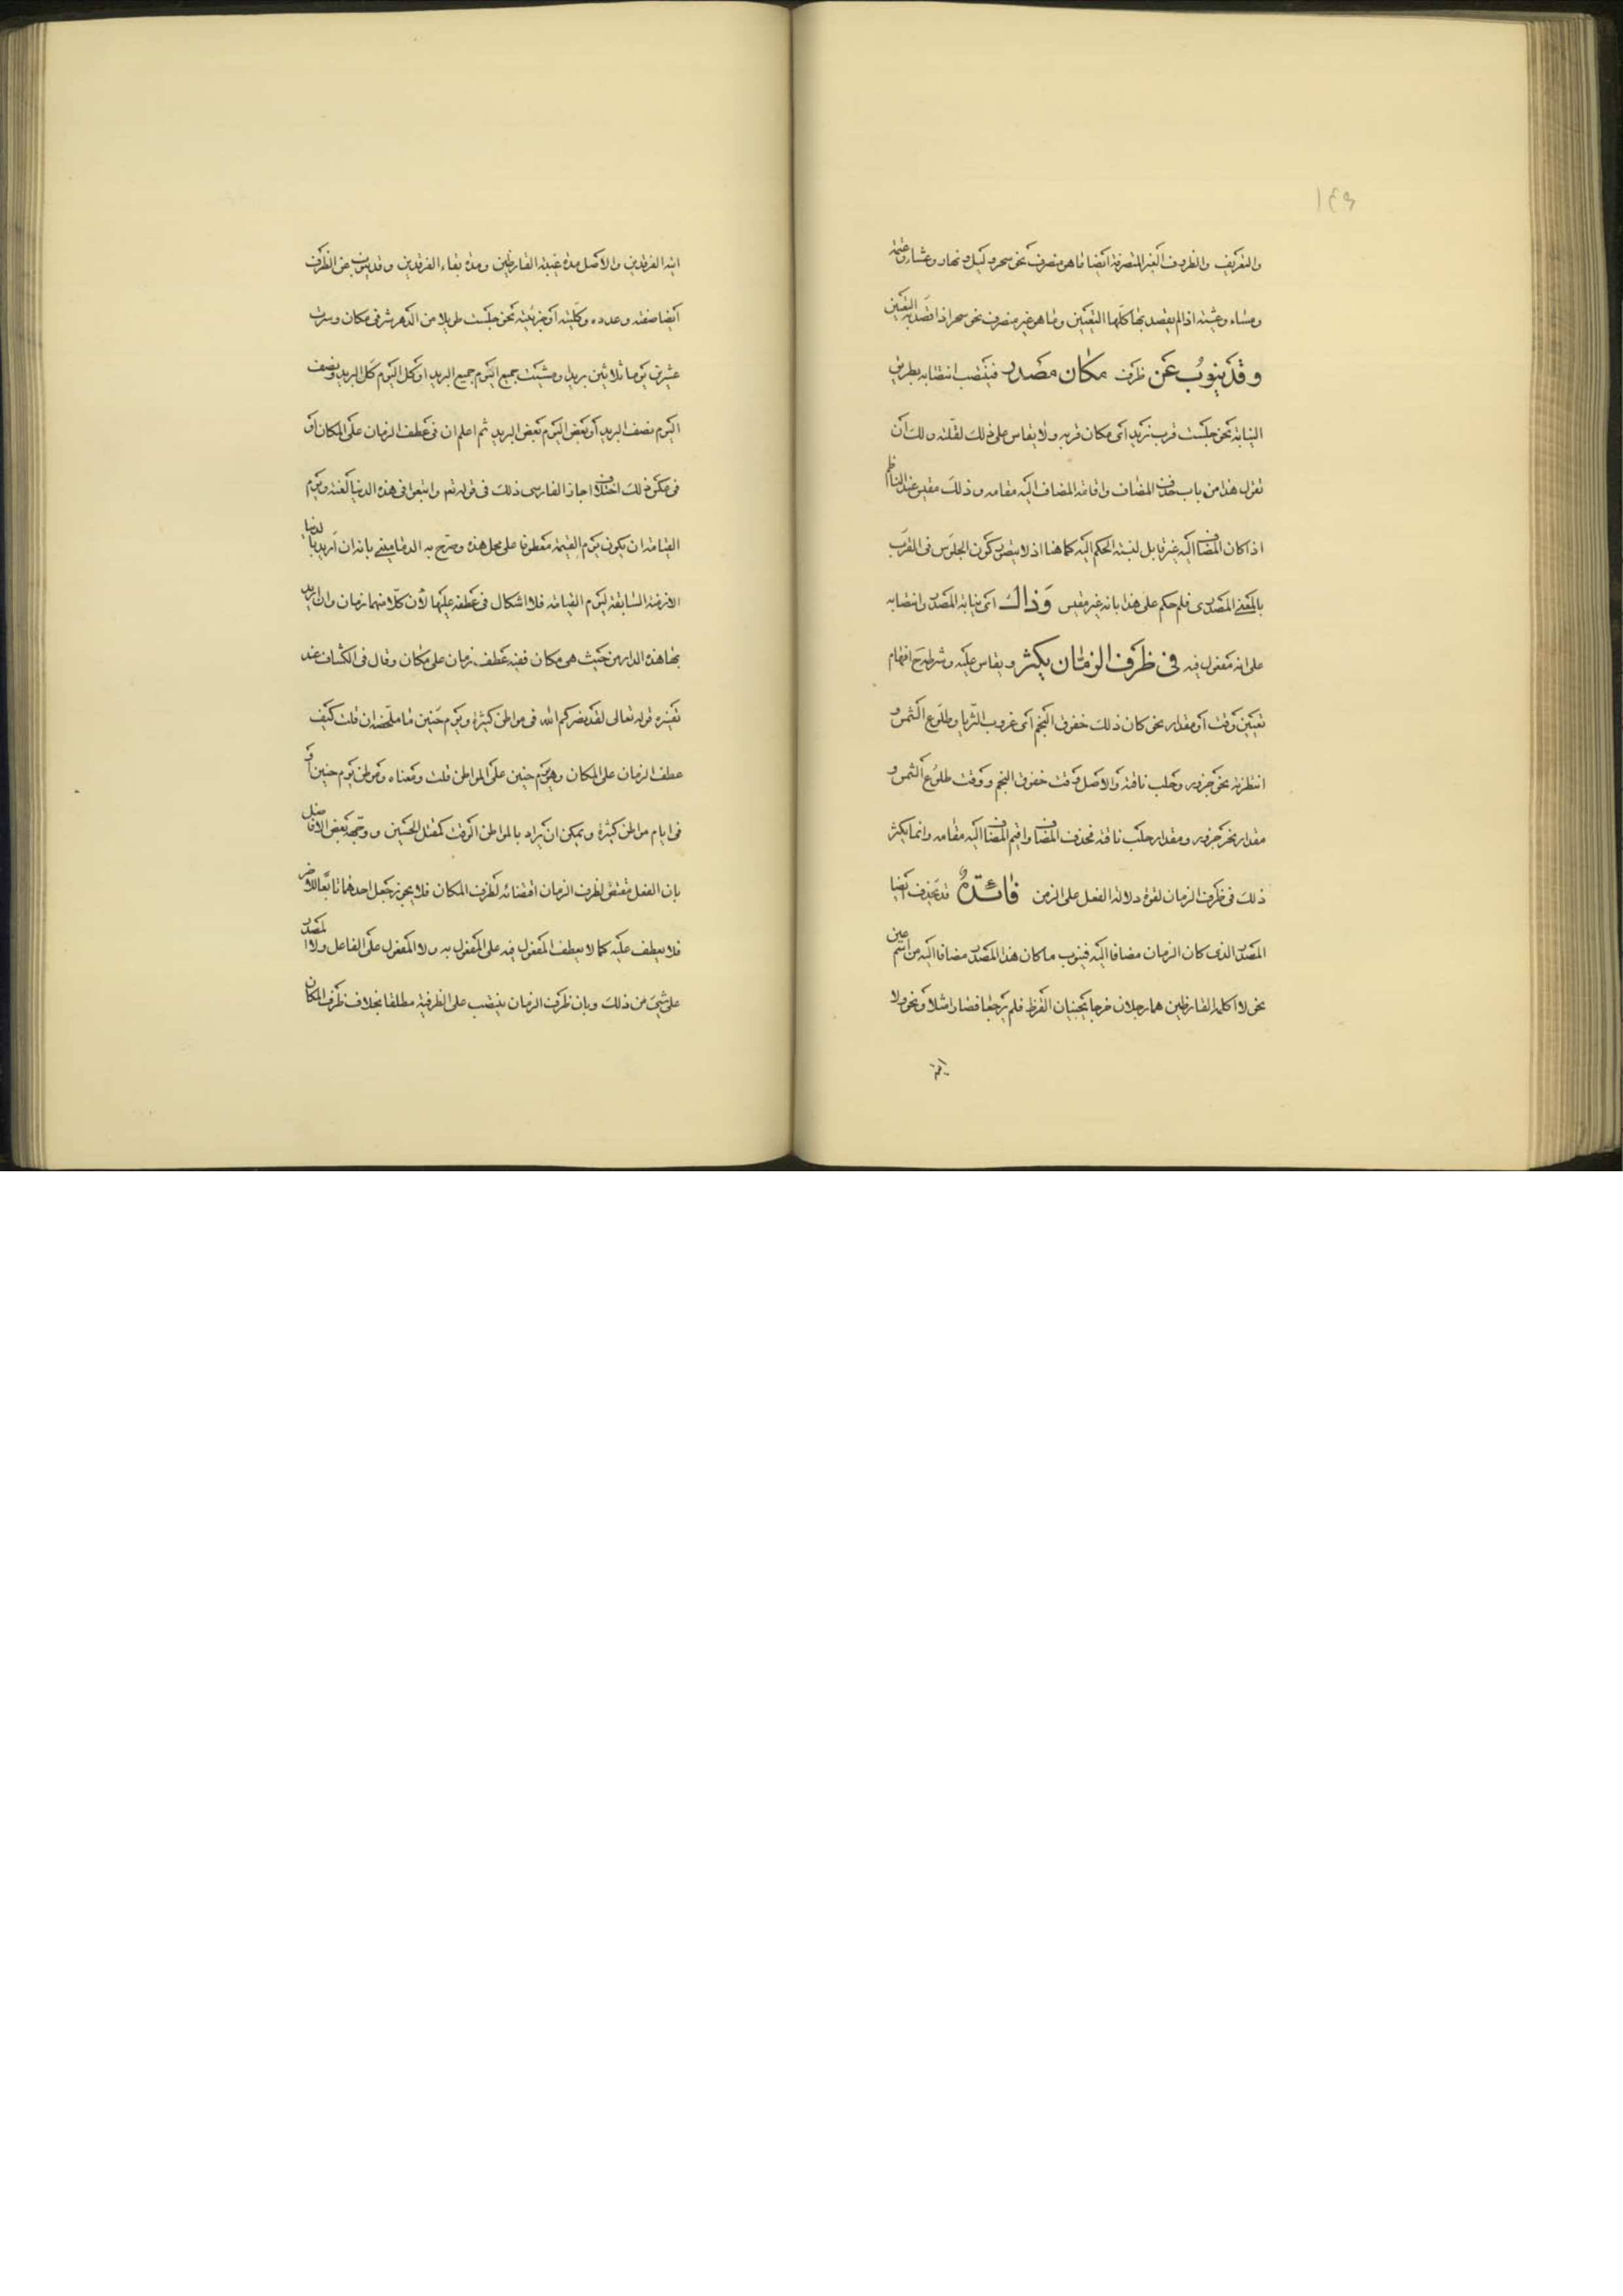 ١٤٩
والتعريف والظروف الغير المتصرفة ايضا ما هو منصرف نحو سحر وليل ونهار وعشاء وعتمة
ومساء وعشية اذا لم يقصد بها كلها التعيين وما هو غير منصرف نحو سحر اذا قصد به التعيين
وقد ينوب عن ظرف مكان مصدر فينتصب انتصابه بطريق
النيابة نحو جلست قرب زيد اى مكان قربه ولا يقاس على ذلك لقلته ولك ان
تقول هذا من باب حذف المضاف واقامة المضاف اليه مقامه وذلك مقيس عند الناظم
اذا كان المضاف اليه غير قابل لنسبة الحكم اليه كما هنا اذ لا يتصور كون الجلوس فى القرب
بالمعنى المصدرى فلم حكم على هذا بانه غير مقيس وذاك اى نيابة المصدر وانتصابه
على انه مفعول فيه فى ظرف الزمان يكثر ويقاس عليه وشرطه افهام
تعيين وقت او مقدار نحو كان ذلك خفوق النجم اى غروب الثريا وطلوع الشمس و
انتظرته نحر جزور وحلب ناقة والاصل وقت خفوق النجم ووقت طلوع الشمس و
مقدار نحر جزور ومقدار حلب ناقة فحذف المضاف واقيم المضاف اليه مقامه وانما يكثر
ذلك فى ظرف الزمان لقوة دلالة الفعل على الزمن فائدة قد يحذف ايضا
المصدر الذى كان الزمان مضافا اليه فينوب ما كان هذا المصدر مضافا اليه من اسم عين
نحو لا اكلمه القارظين هما رجلان خرجا يجنيان القرظ فلم يرجعا فصارا مثلا ونحو لا
آتيه
اتيه الفرقدين والاصل مدة غيبة القارظين ومدة بقاء الفرقدين وقد ينوب عن الظرف
ايضا صفته وعدده وكليته او جزئيته نحو جلست طويلا من الدهر شرقى مكان وسرت
عشرين يوما ثلاثين بريدا ومشيت جميع اليوم جميع البريد او كل اليوم كل البريد ونصف
اليوم نصف البريد او بعض اليوم بعض البريد ثم اعلم ان فى عطف الزمان على المكان او
فى عكس ذلك اختلافا اجاز الفارسى ذلك فى قوله تعم واتبعوا فى هذه الدنيا لعنة ويوم
القيامة ان يكون يوم القيمة معطوفا على محل هذه وصرح به الدمامينى بانه ان اريد بالدنيا
الازمنة السابقة ليوم القيامة فلا اشكال فى عطفه عليها لان كلا منهما زمان وان اريد
بها هذه الدار من حيث هى مكان ففيه عطف زمان على مكان وقال فى الكشاف عند
تفسيره قوله تعالى لقد نصركم الله فى مواطن كثيرة ويوم حنين ما ملخصه ان قلت كيف
عطف الزمان على المكان وهو يوم حنين على المواطن قلت ومعناه وموطن يوم حنين او
فى ايام مواطن كثيرة ويمكن ان يراد بالمواطن الوقت كمقتل الحسين ووجهه بعض الافاضل
بان الفعل مقتض لظرف الزمان اقتضائه لظرف المكان فلا يجوز جعل احدهما تابعا للاخر
فلا يعطف عليه كما لا يعطف المفعول فيه على المفعول به ولا المفعول على الفاعل ولا المصدر
على شىء من ذلك وبان ظرف الزمان ينتصب على الظرفية مطلقا بخلاف ظرف المكان